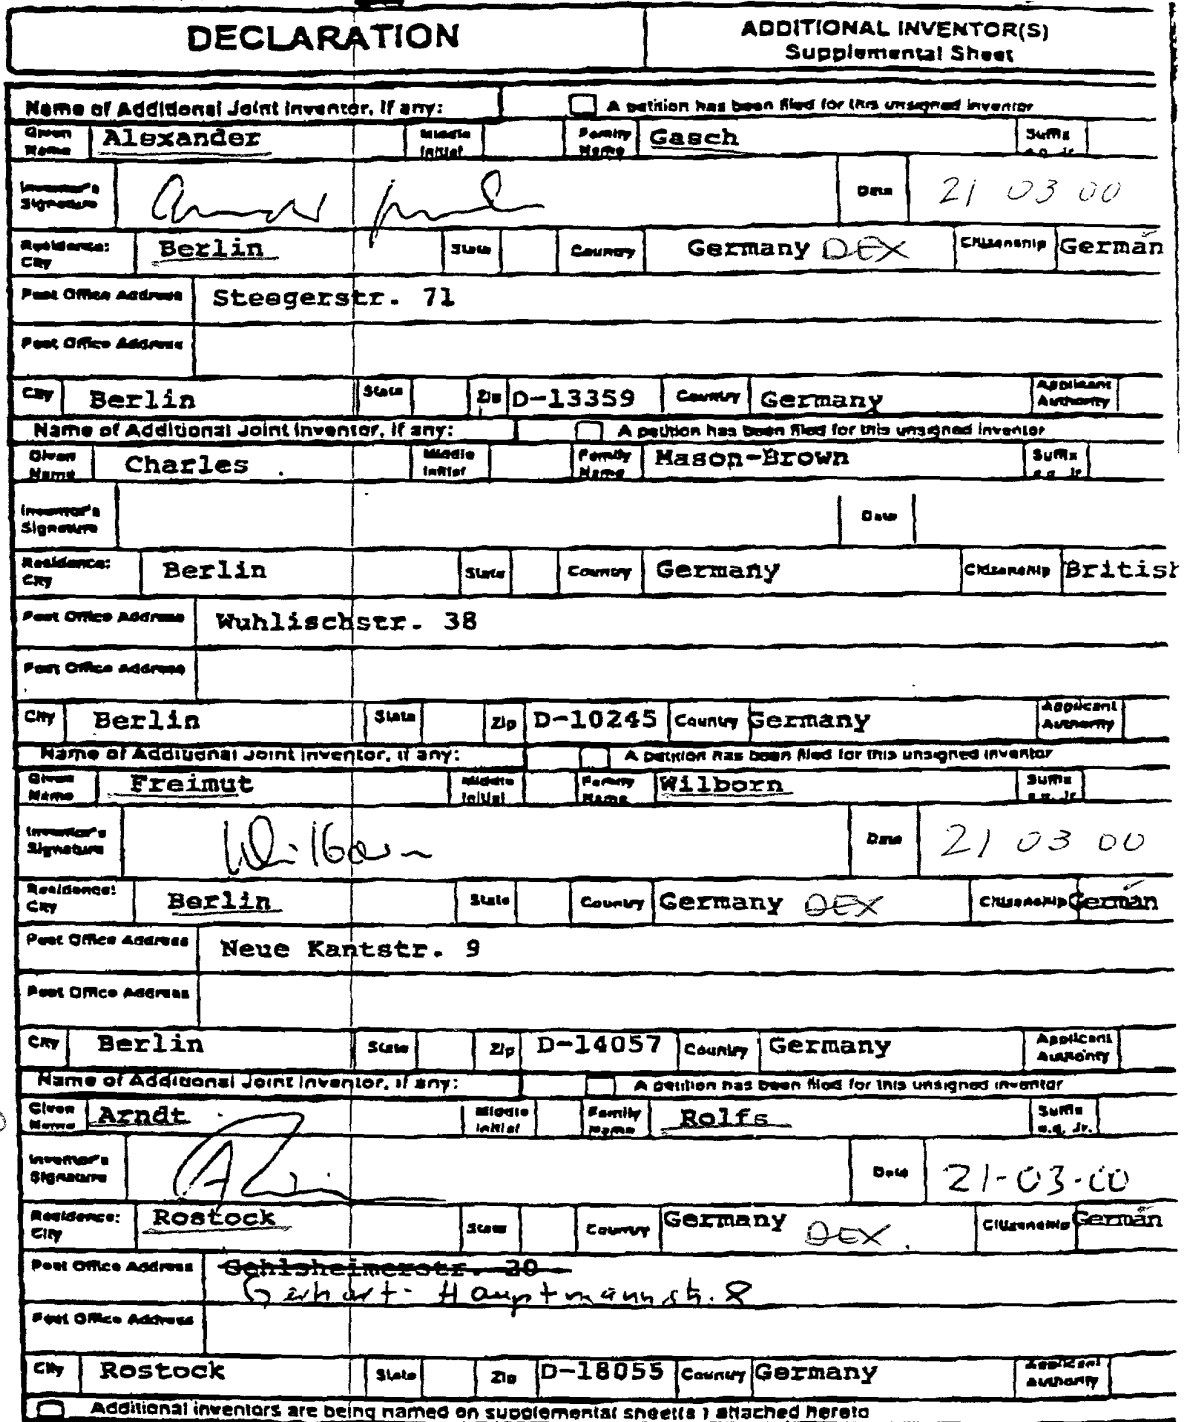 DECLARATION
ADDITIONAL INVENTOR(S)
Supplemental Sheet
Name of Additional Joint Inventor, if any:
A petition has been filed for this unsigned inventor
Given Name Alexander Middle Initial Family Name Gasch Suffix e.g. Jr.
Inventor's Signature Date 21 03 00
Residence: City Berlin State Country Germany DEX Citizenship German
Post Office Address Steegerstr. 71
Post Office Address
City Berlin State Zip D-13359 Country Germany Applicant Authority
Name of Additional Joint Inventor, if any:
A petition has been filed for this unsigned inventor
Given Name Charles Middle Initial Family Name Mason-Brown Suffix e.g. Jr.
Inventor's Signature Date
Residence: City Berlin State Country Germany Citizenship British
Post Office Address Wuhlischstr. 38
Post Office Address
City Berlin State Zip D-10245 Country Germany Applicant Authority
Name of Additional Joint Inventor, if any:
A petition has been filed for this unsigned inventor
Given Name Freimut Middle Initial Family Name Wilborn Suffix e.g. Jr.
Inventor's Signature Wilborn Date 21 03 00
Residence: City Berlin State Country Germany DEX Citizenship German
Post Office Address Neue Kantstr. 9
Post Office Address
City Berlin State Zip D-14057 Country Germany Applicant Authority
Name of Additional Joint Inventor, if any:
A petition has been filed for this unsigned inventor
Given Name Arndt Middle Initial Family Name Rolfs Suffix e.g. Jr.
Inventor's Signature Date 21-03-00
Residence: City Rostock State Country Germany DEX Citizenship German
Post Office Address Gehlsheimerstr. 20
Gerhart-Hauptmannstr. 8
Post Office Address
City Rostock State Zip D-18055 Country Germany Applicant Authority
Additional inventors are being named on supplemental sheet(s) attached hereto